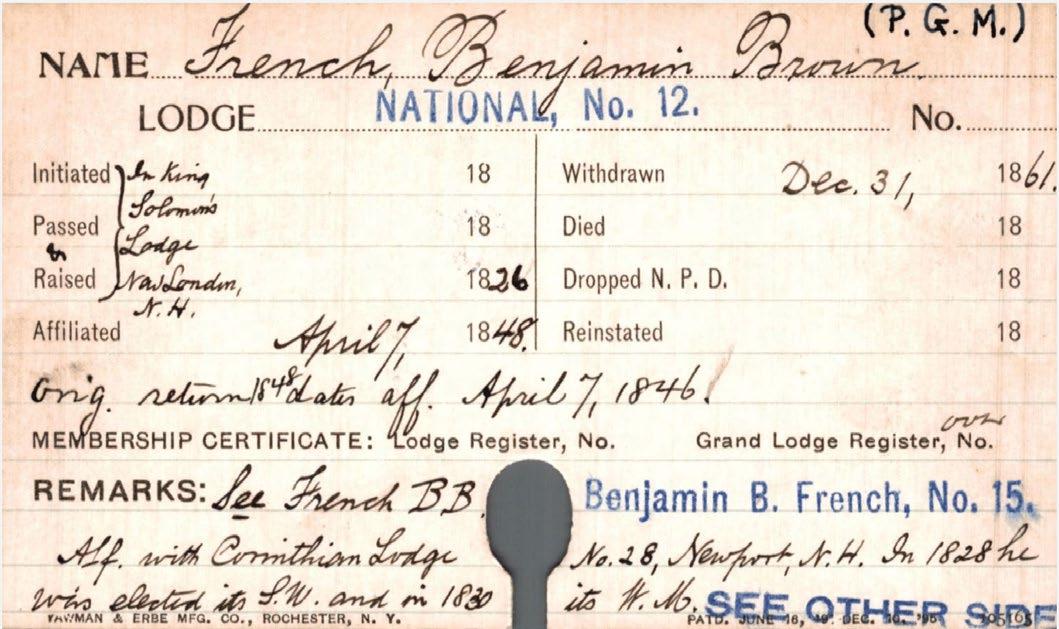 (P. G. M.)
NAME French, Benjamin Brown.
LODGE NATIONAL, No. 12. No.
Initiated In King 18 Withdrawn Dec. 31, 1861.
Solomon's
Passed 18 Died 18
& Lodge
Raised New London, 1826 Dropped N. P. D. 18
N. H.
Affiliated April 7, 1848. Reinstated 18
Orig. return 1848 dates aff. April 7, 1846!
over
MEMBERSHIP CERTIFICATE: Lodge Register, No. Grand Lodge Register, No.
REMARKS: See French B B. Benjamin B. French, No. 15.
Aff. with Corinthian Lodge No. 28, Newport, N. H. In 1828 he
was elected its S. W. and in 1830 its W. M. SEE OTHER SIDE
YAWMAN & ERBE MFG. CO., ROCHESTER, N. Y. PATD. JUNE 16, DEC. 10, '95